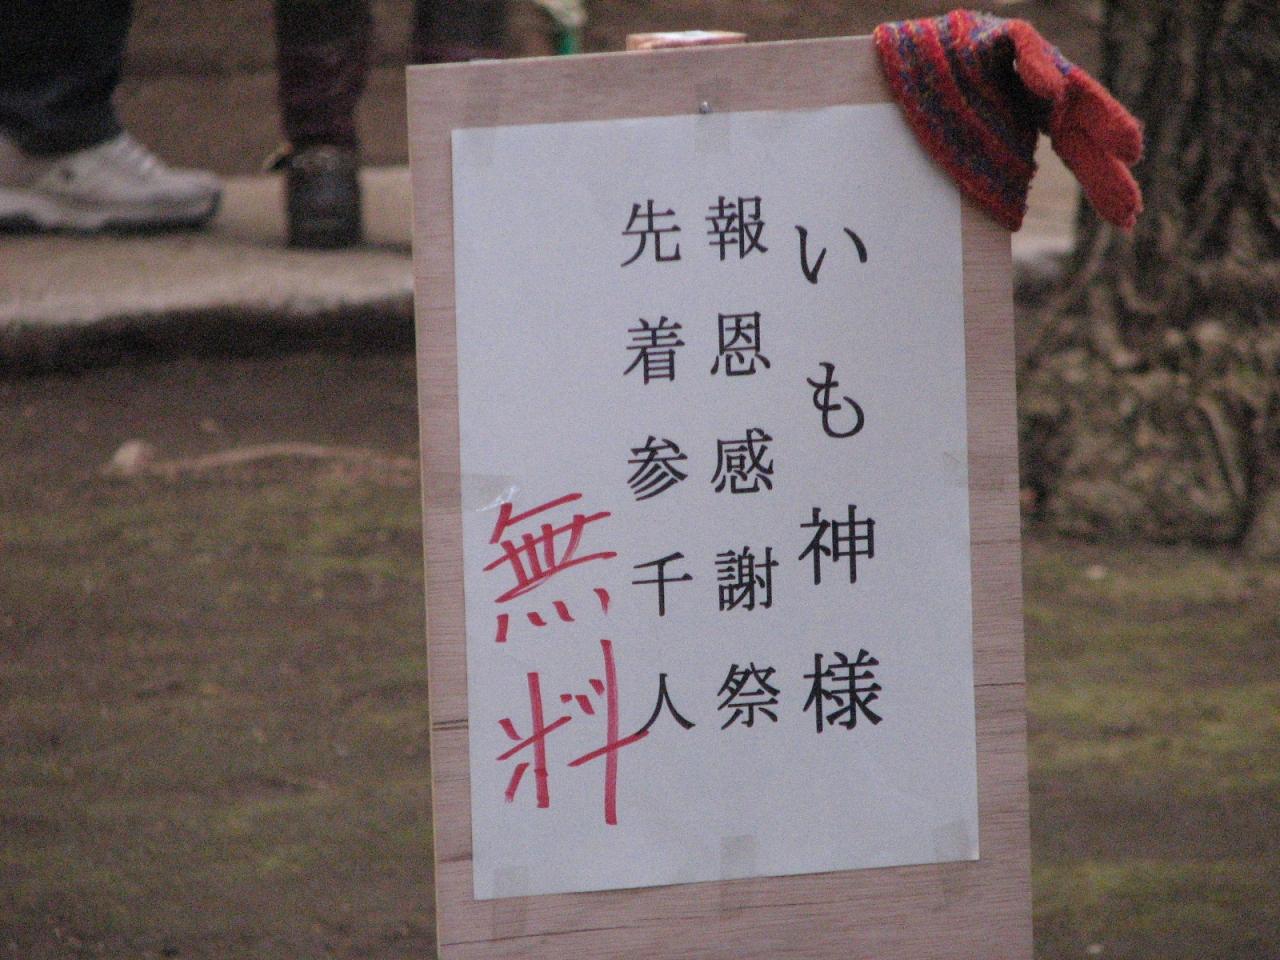 いも神様
報恩感謝祭
先着参千人
無料